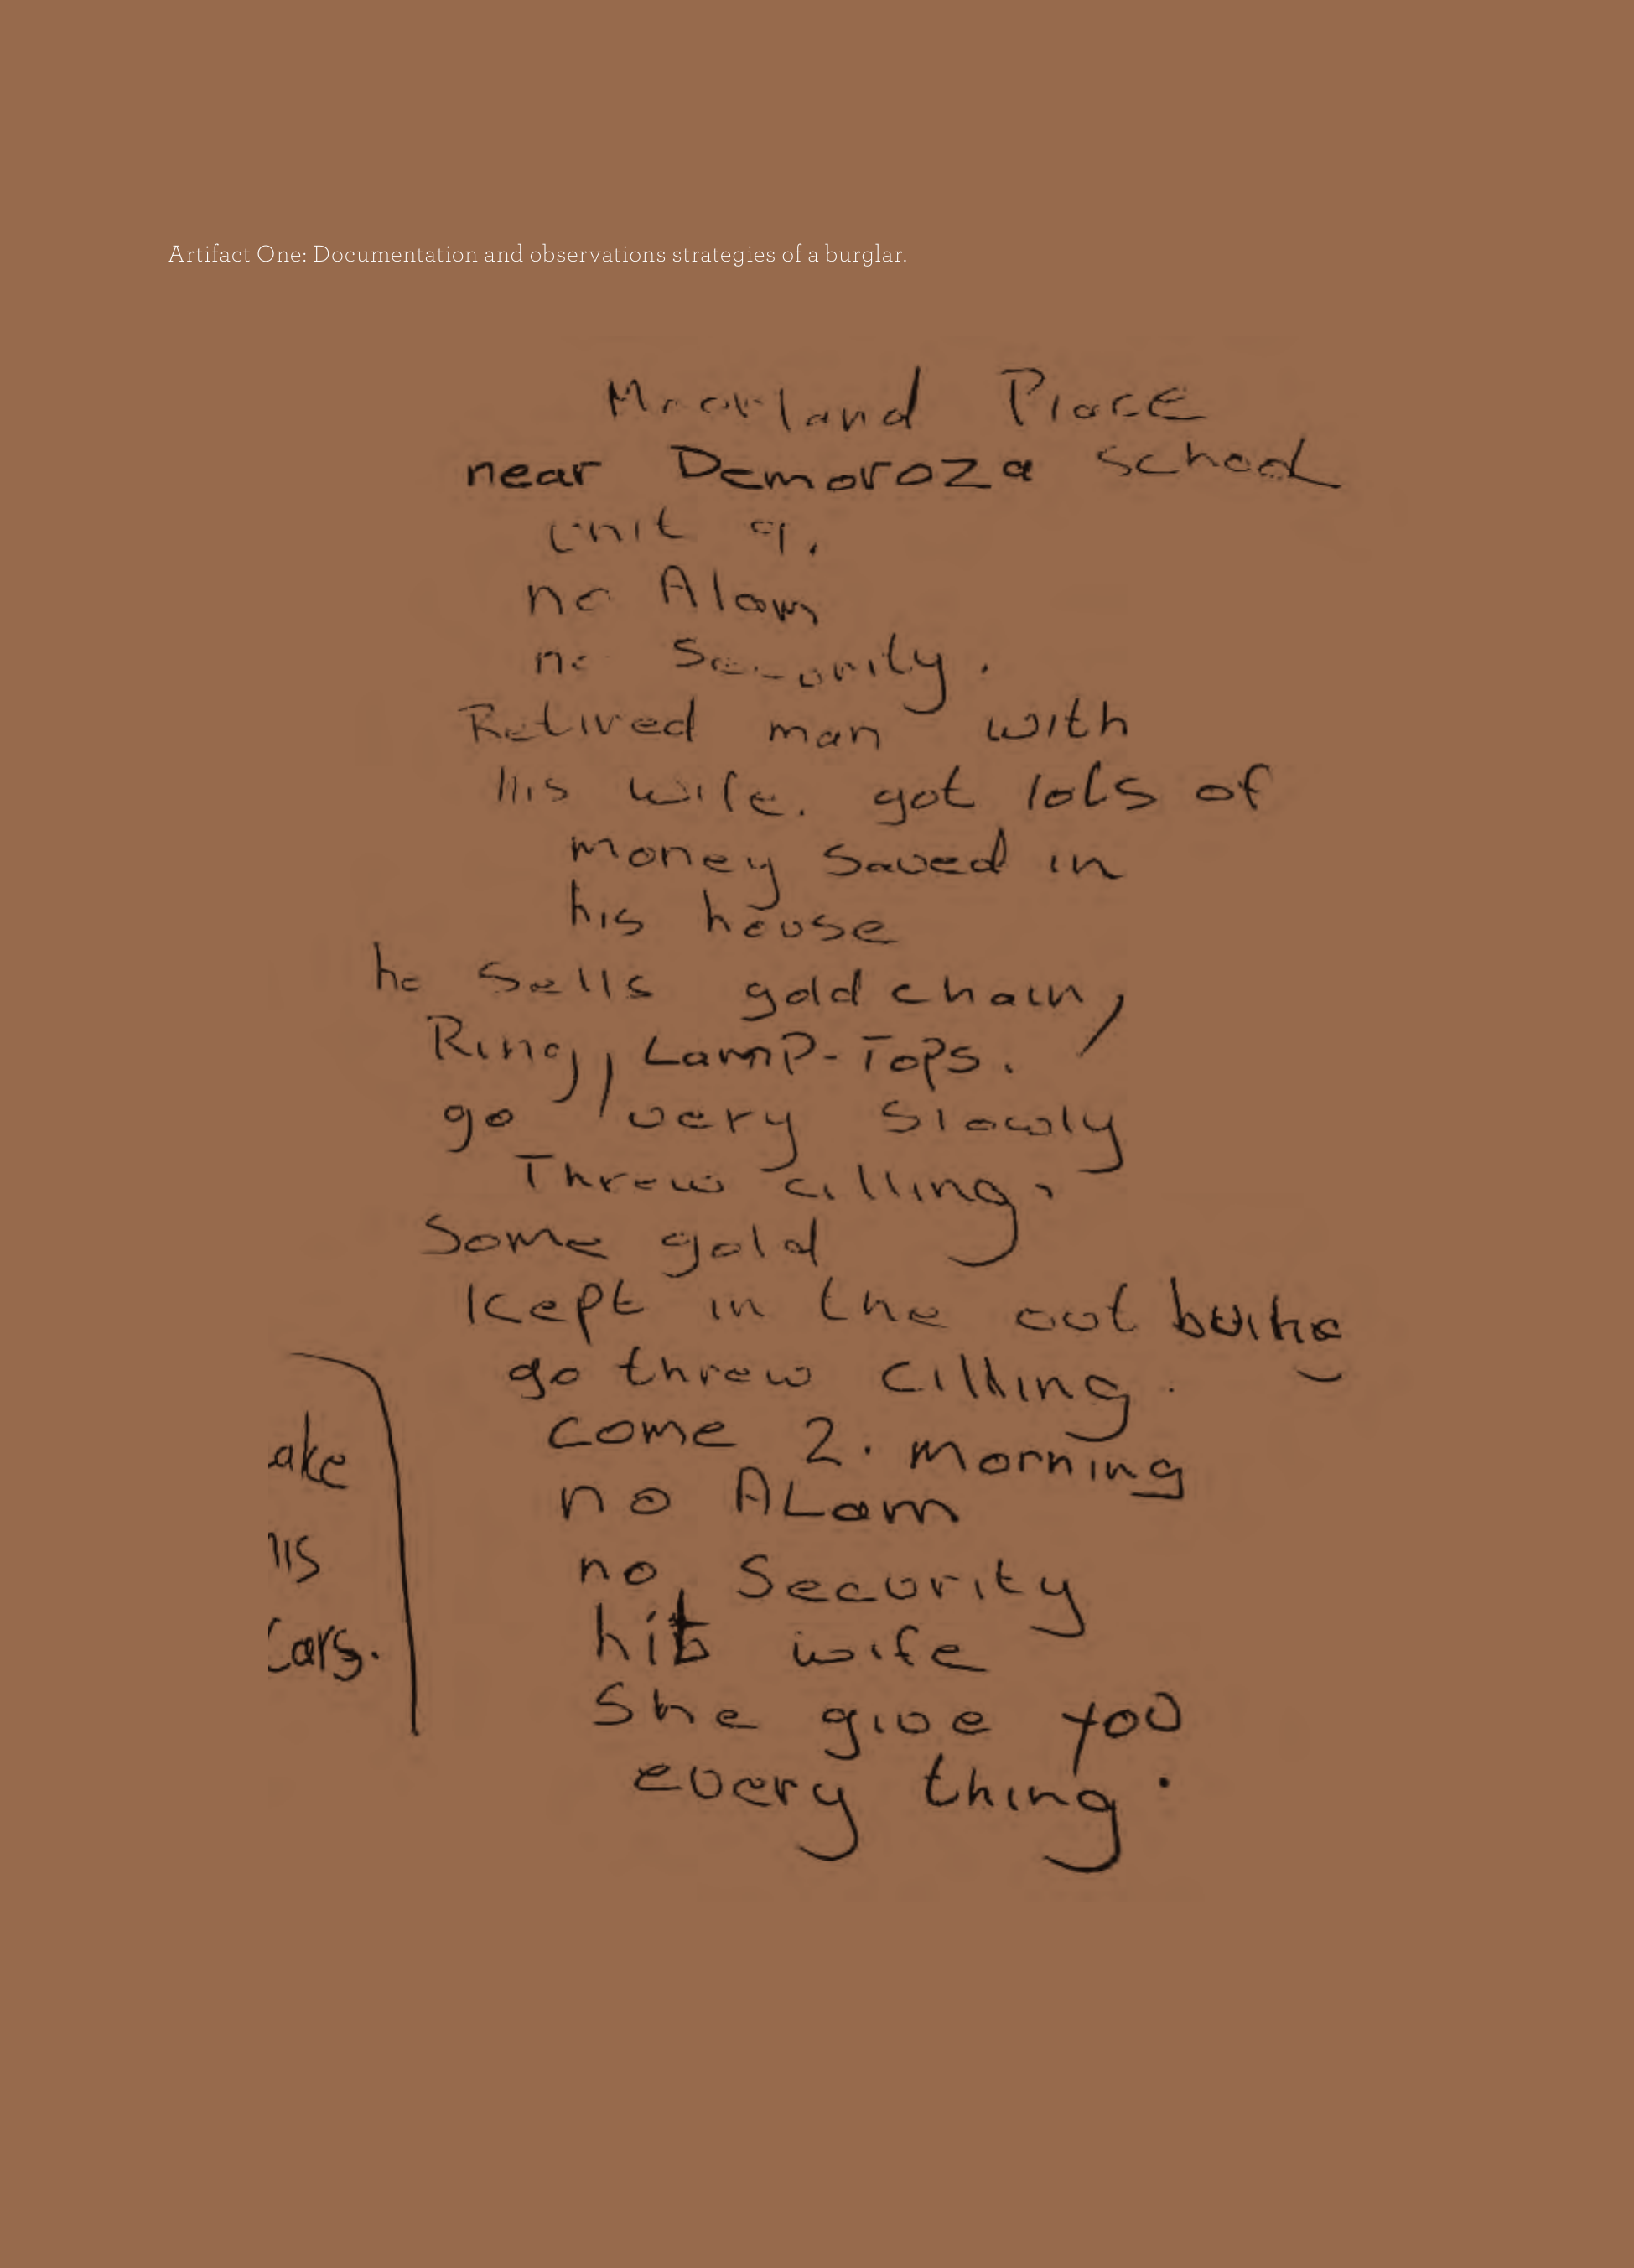 Artifact One: Documentation and observations strategies of a burglar.
Moorland Place
near Demoroza School
Unit 9.
no Alam
no Security.
Retired man with
His wife. got lots of
money saved in
his house
he sells gold chain,
Ring, Lamp-Tops.
go very Slowly
Threw cilling.
Some gold
kept in the out
go threw cilling.
come 2. morning
no ALam
no Security
hit wife
She give you
every thing.
ake
his
Cars.